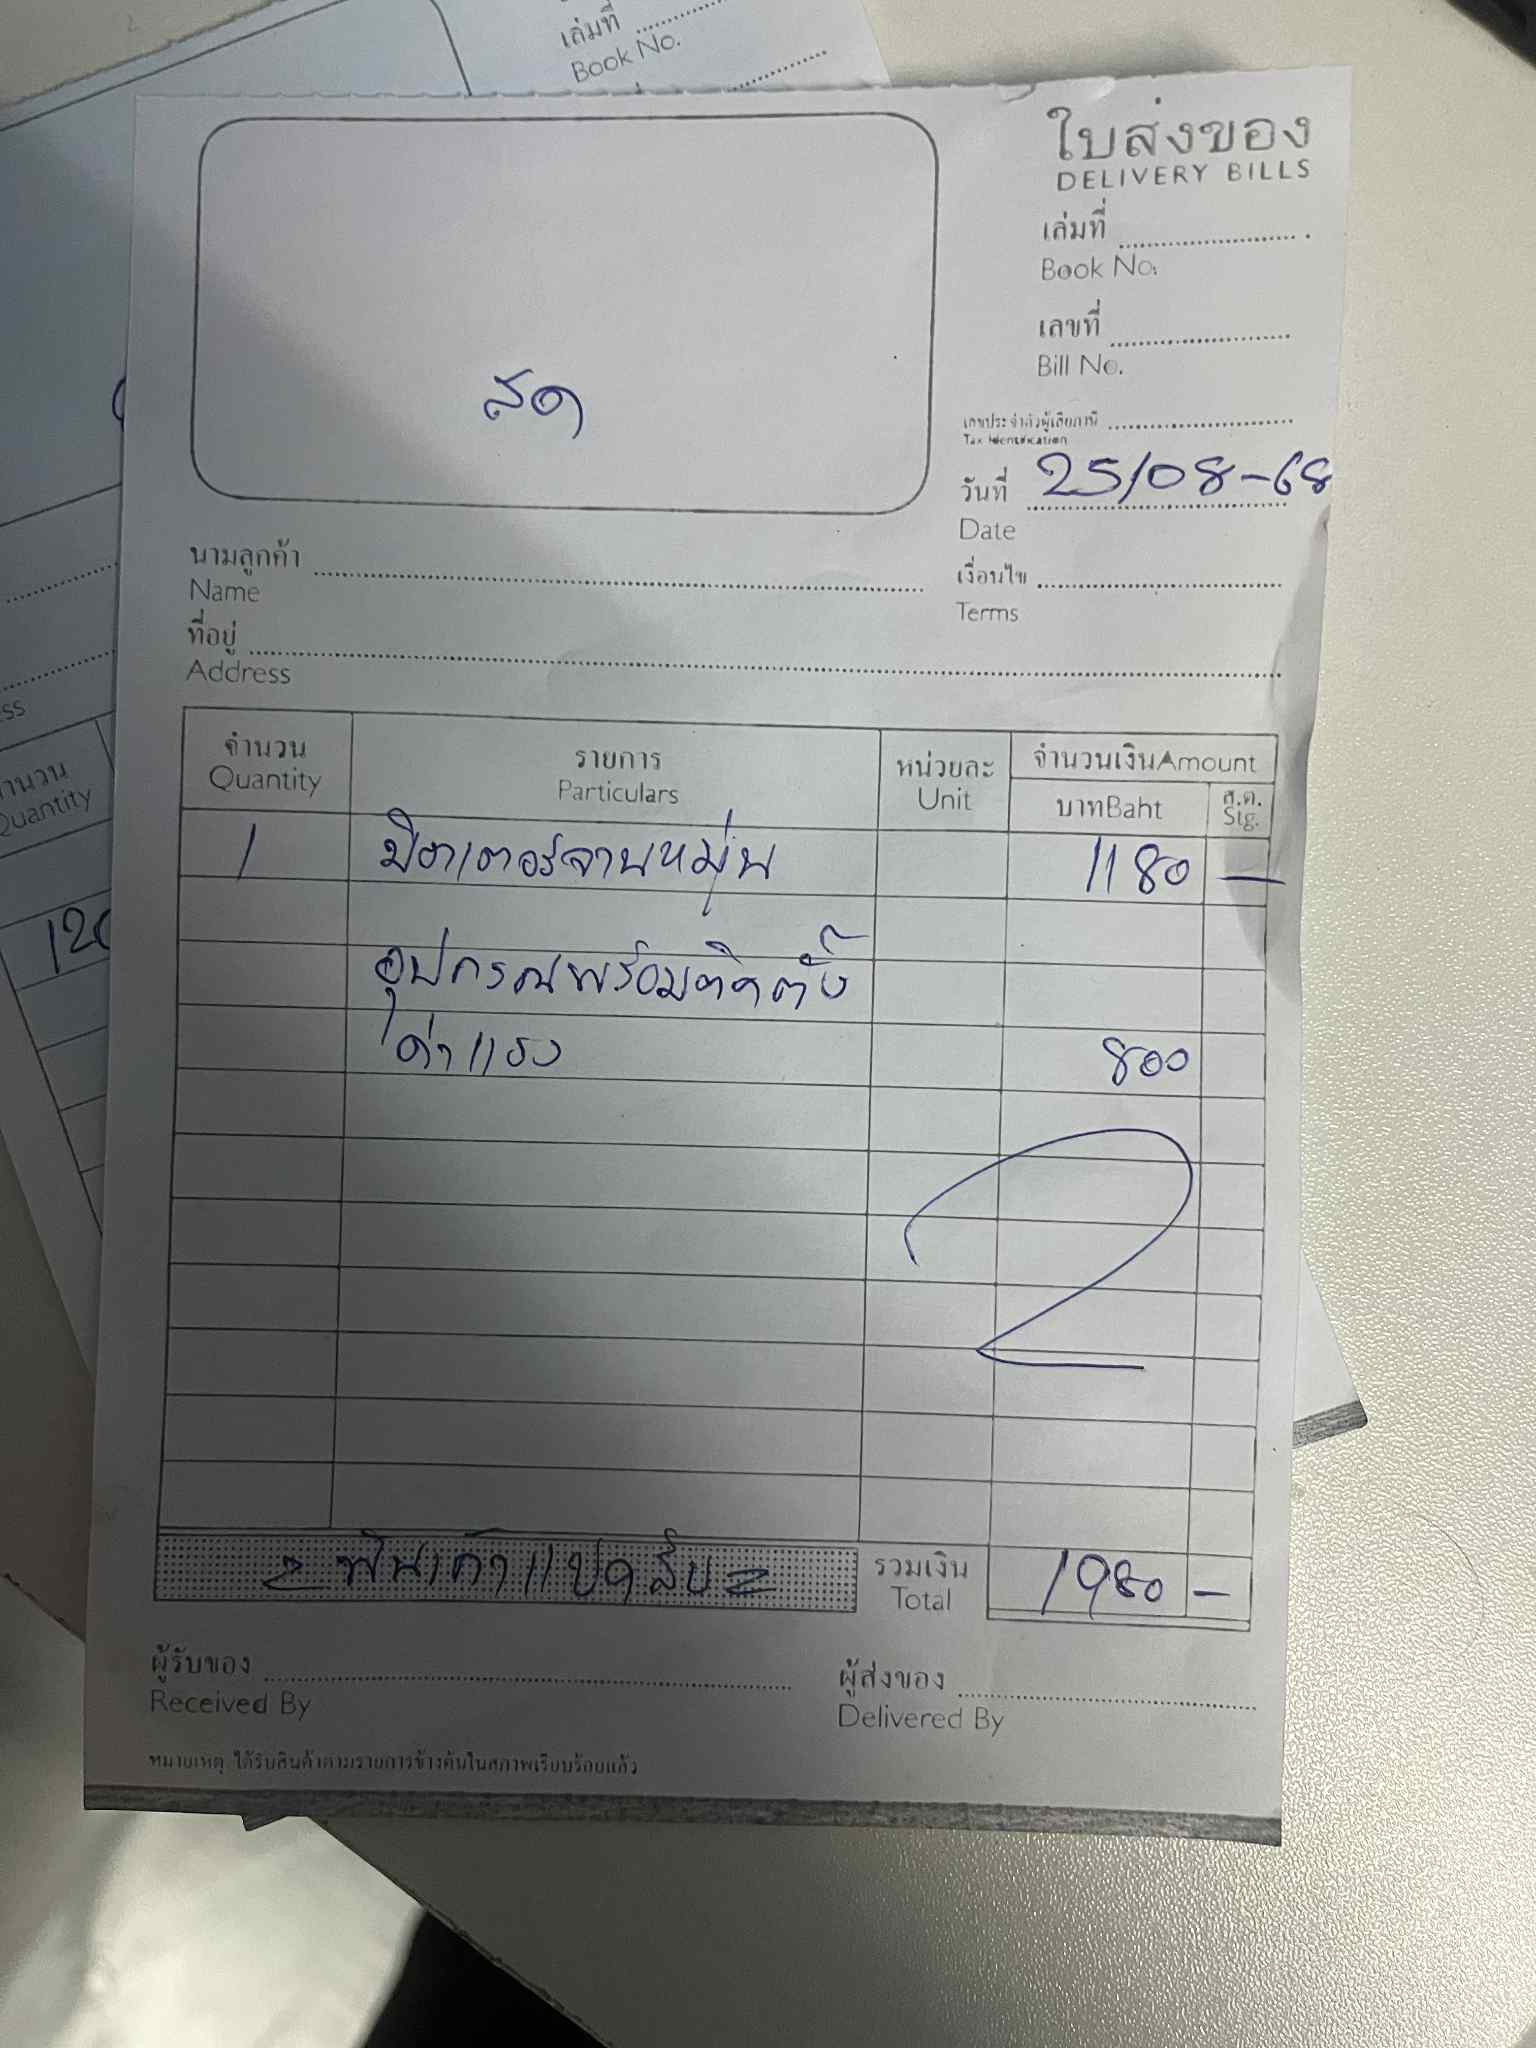 เล่มที่
Book No.
ใบส่งของ
DELIVERY BILLS
เล่มที่
Book No.
เลขที่
Bill No.
สด
เลขประจำตัวผู้เสียภาษี
Tax Identification
วันที่ 25/08-68
Date
นามลูกค้า
Name
เงื่อนไข
Terms
ที่อยู่
Address
จำนวน รายการ หน่วยละ จำนวนเงินAmount
Quantity Particulars Unit บาทBaht ส.ต. Stg.
1 มิตเตอร์จานหมุ่น 1180 –
อุปกรณ์พร้อมติดตั้ง
ค่าแรง 800
= พันเก้าแปดสิบ = รวมเงิน Total 1980 –
ผู้รับของ
Received By
ผู้ส่งของ
Delivered By
หมายเหตุ ได้รับสินค้าตามรายการข้างต้นในสภาพเรียบร้อยแล้ว
Quantity
120